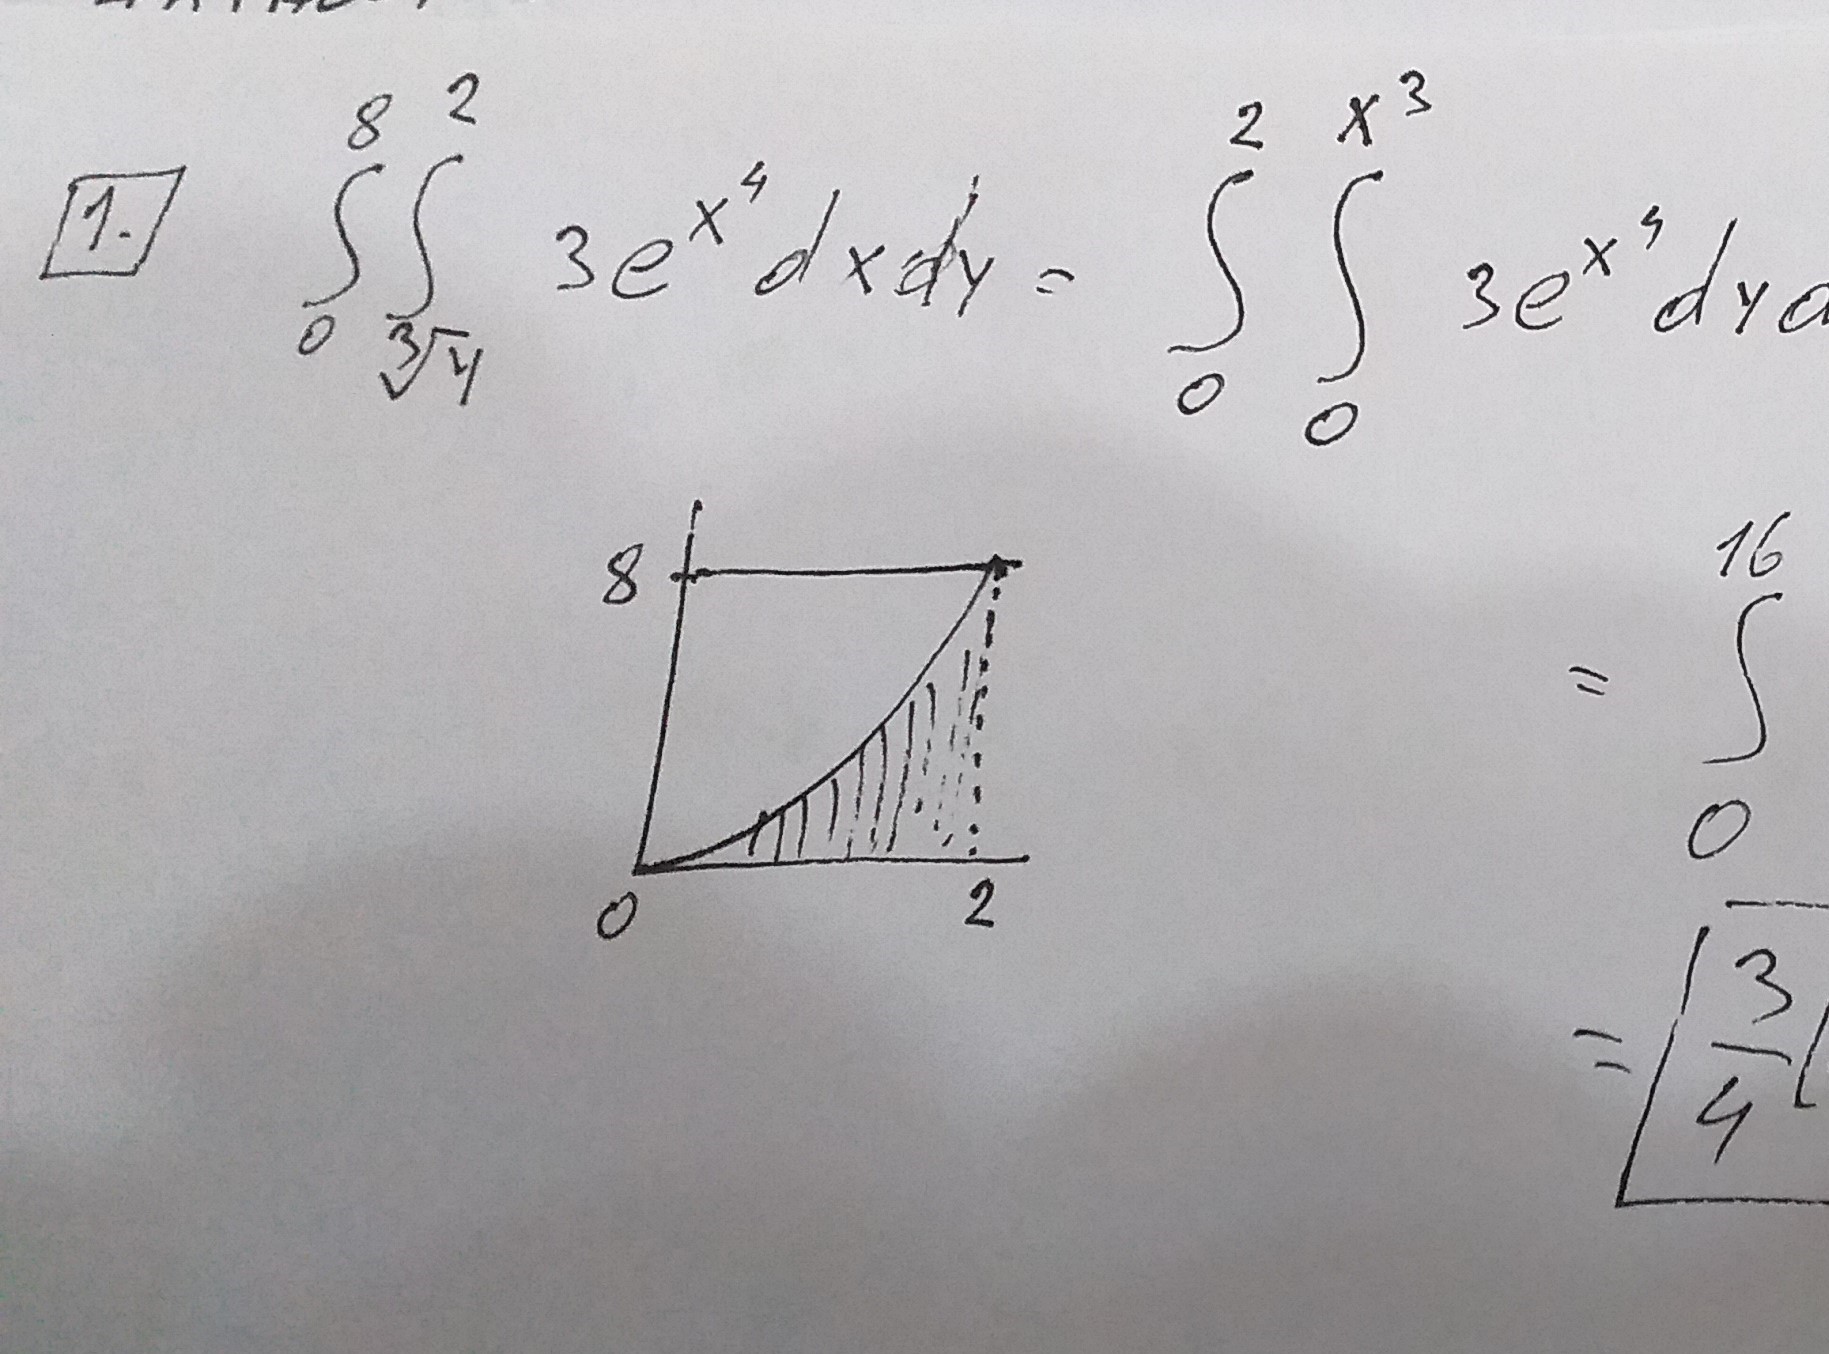 1. ∫₀⁸ ∫_{∛y}^2 3e^{x^4} dx dy = ∫₀² ∫₀^{x^3} 3e^{x^4} dy d
8
= ∫₀^16
0 2
= 3/4 [